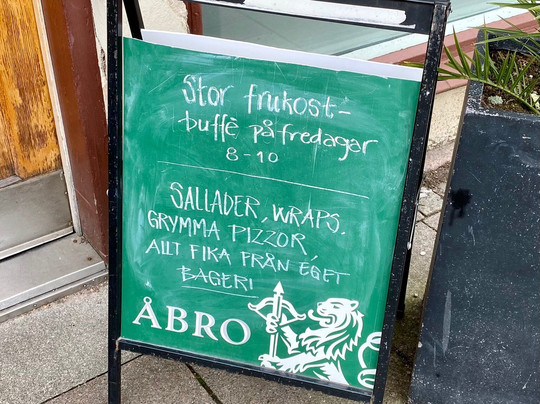 Stor frukost-
buffè på fredagar
8-10
SALLADER, WRAPS,
GRYMMA PIZZOR,
ALLT FIKA FRÅN EGET
BAGERI
ÅBRO